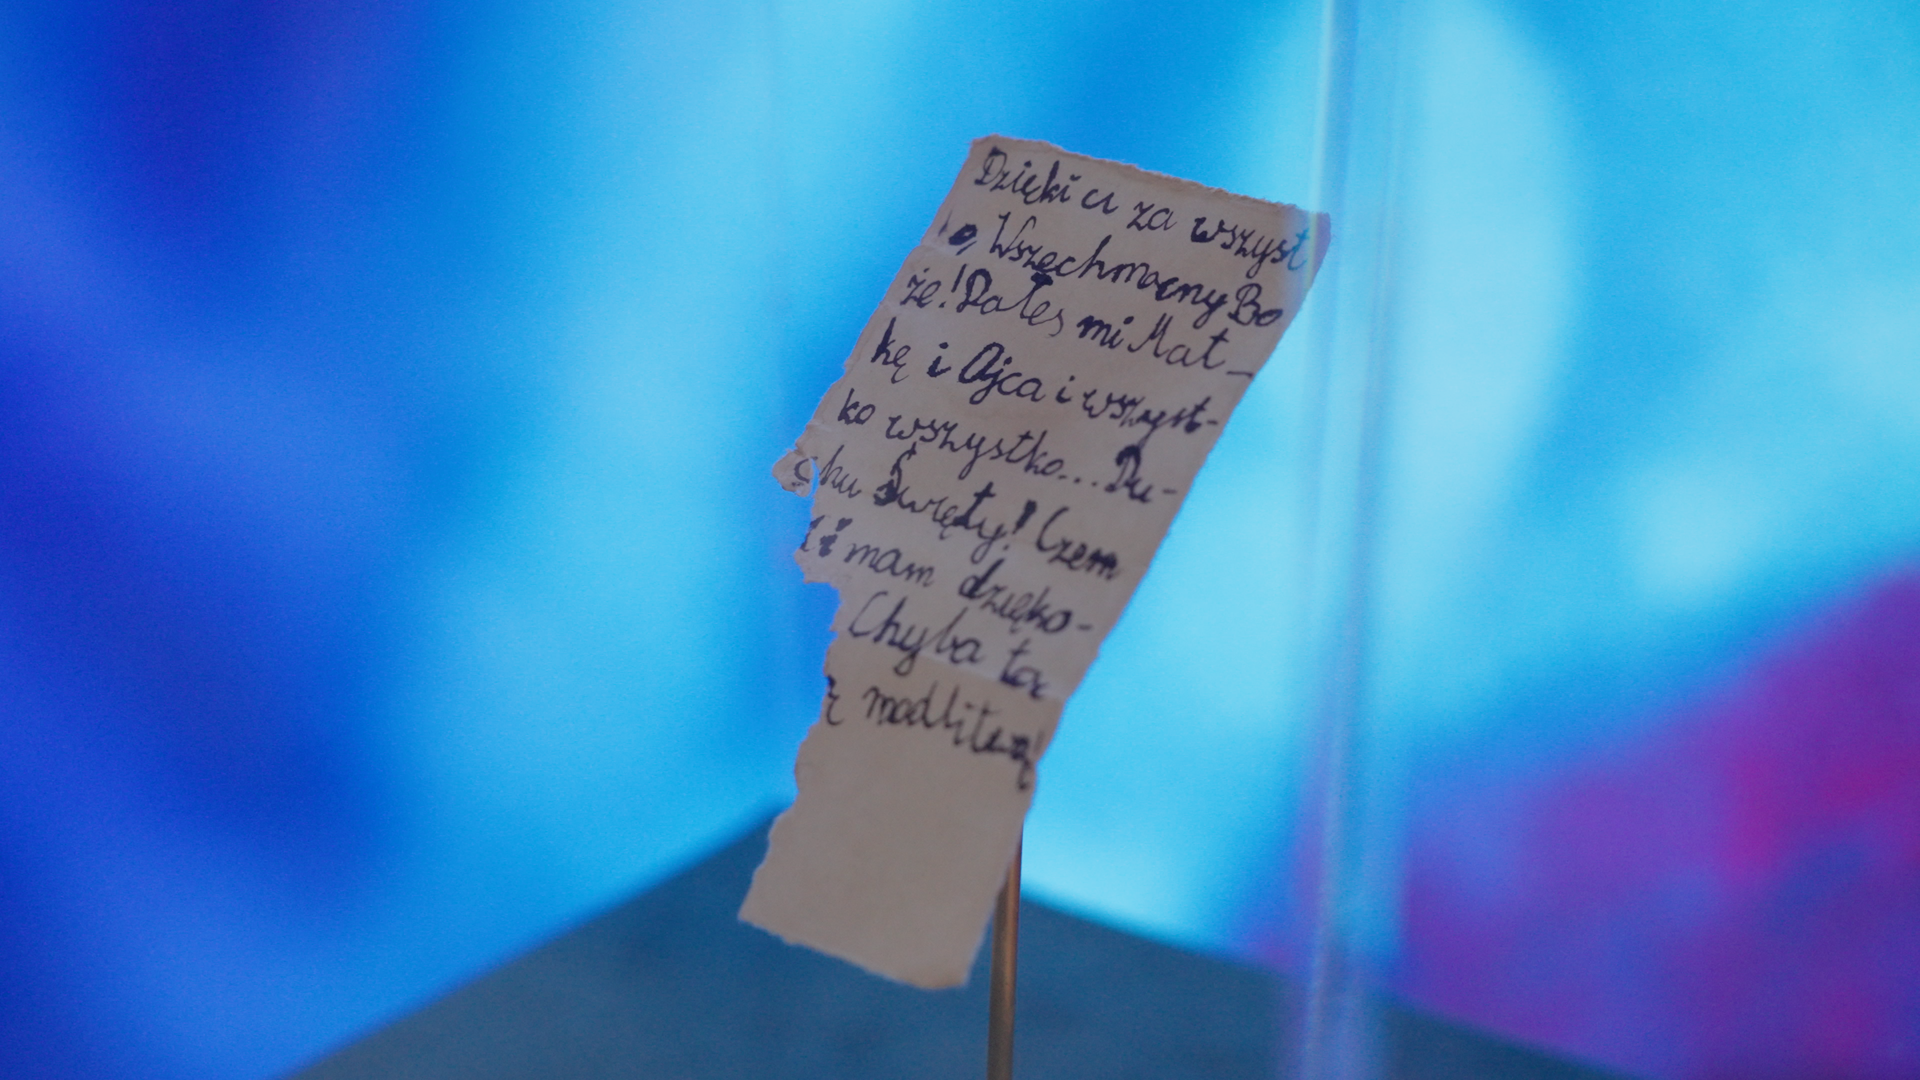 Dzięki ci za wszyst
o, Wszechmocny Bo
że! Dałeś mi Mat_
kę i Ojca i wszyst-
ko wszystko... Du-
chu Święty! Czem
Ci mam dzięko-
Chyba tą
ż modlitwą!